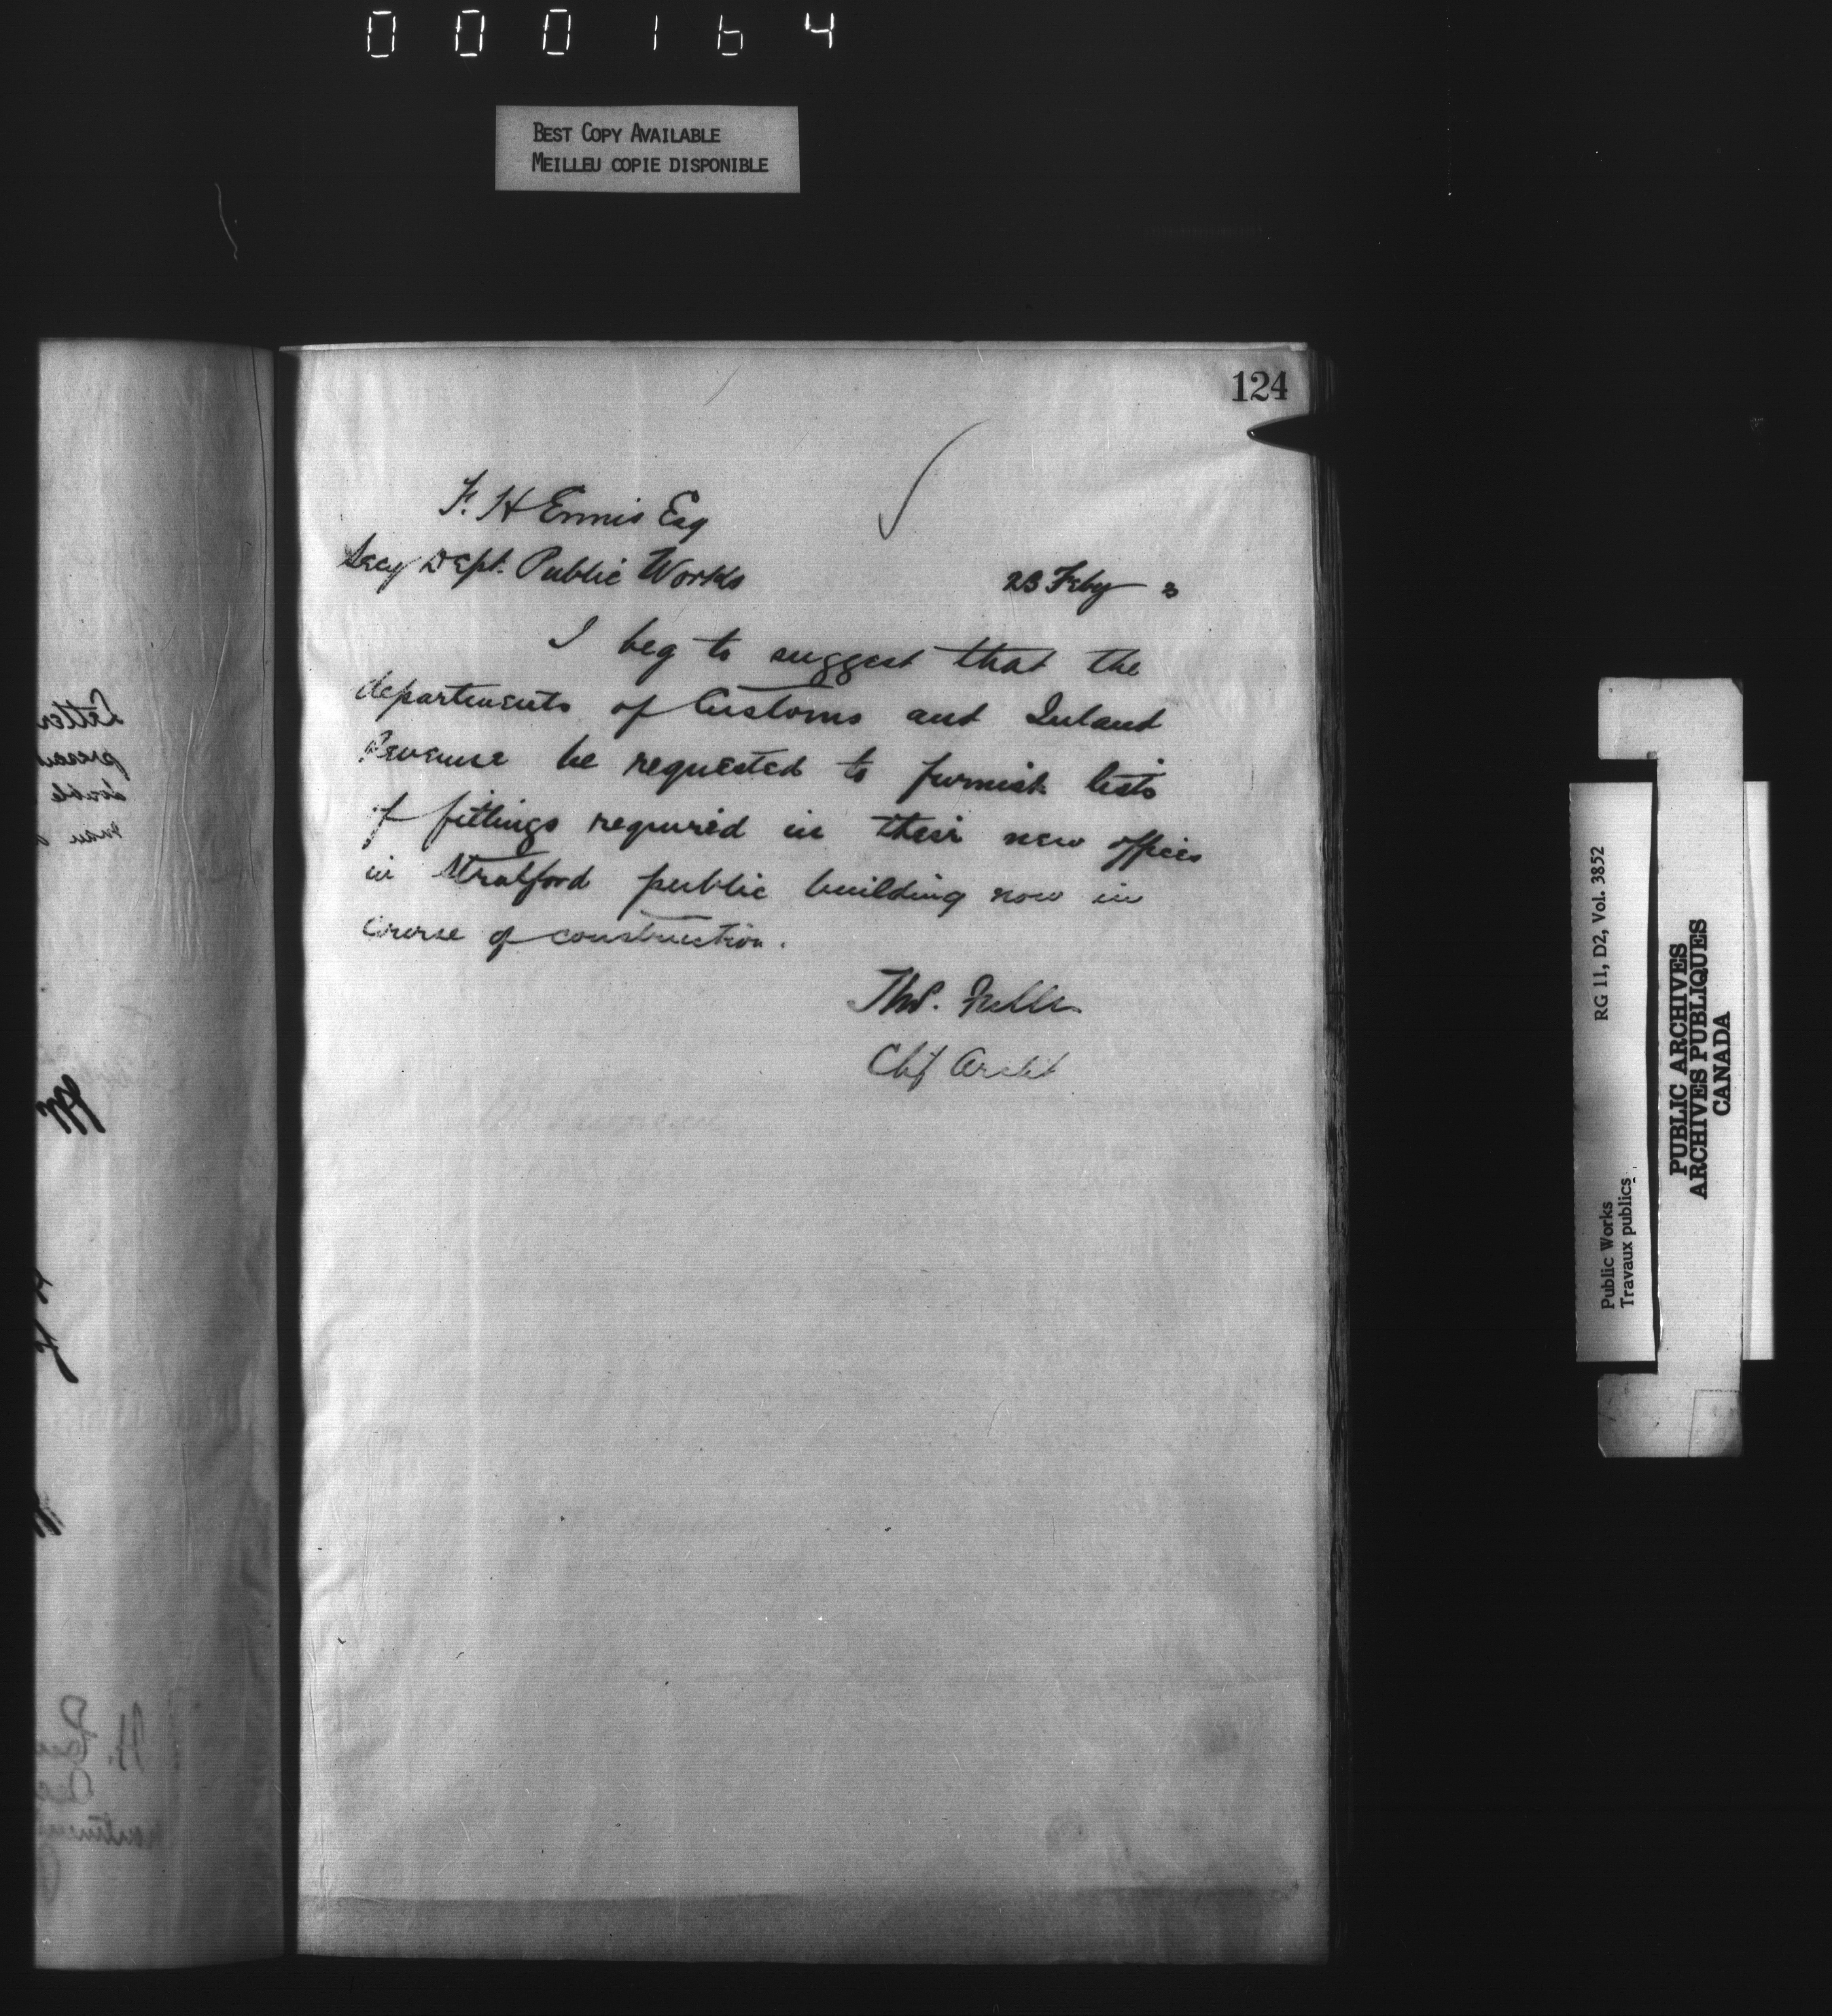 000164
BEST COPY AVAILABLE
MEILLEU COPIE DISPONIBLE
124
F. H Ennis Esq
Secy Dept. Public Works
23 Feby 3
I beg to suggest that the
departments of Customs and Inland
Revenue be requested to furnish lists
of fittings required in their new offices
in Stratford public building now in
course of construction.
Thos. Fuller
Chf Archt
RG 11, D2, Vol. 3852
Public Works
Travaux publics
PUBLIC ARCHIVES
ARCHIVES PUBLIQUES
CANADA